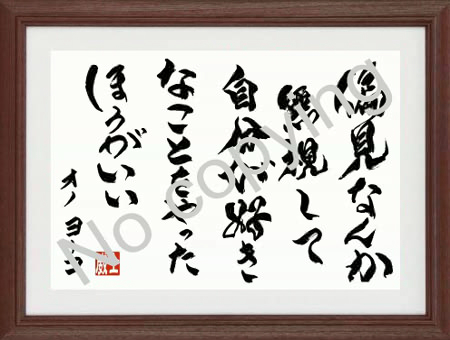 偏見なんか
無視して
自分が好き
なことをやった
ほうがいい
オノ ヨーコ
No copying